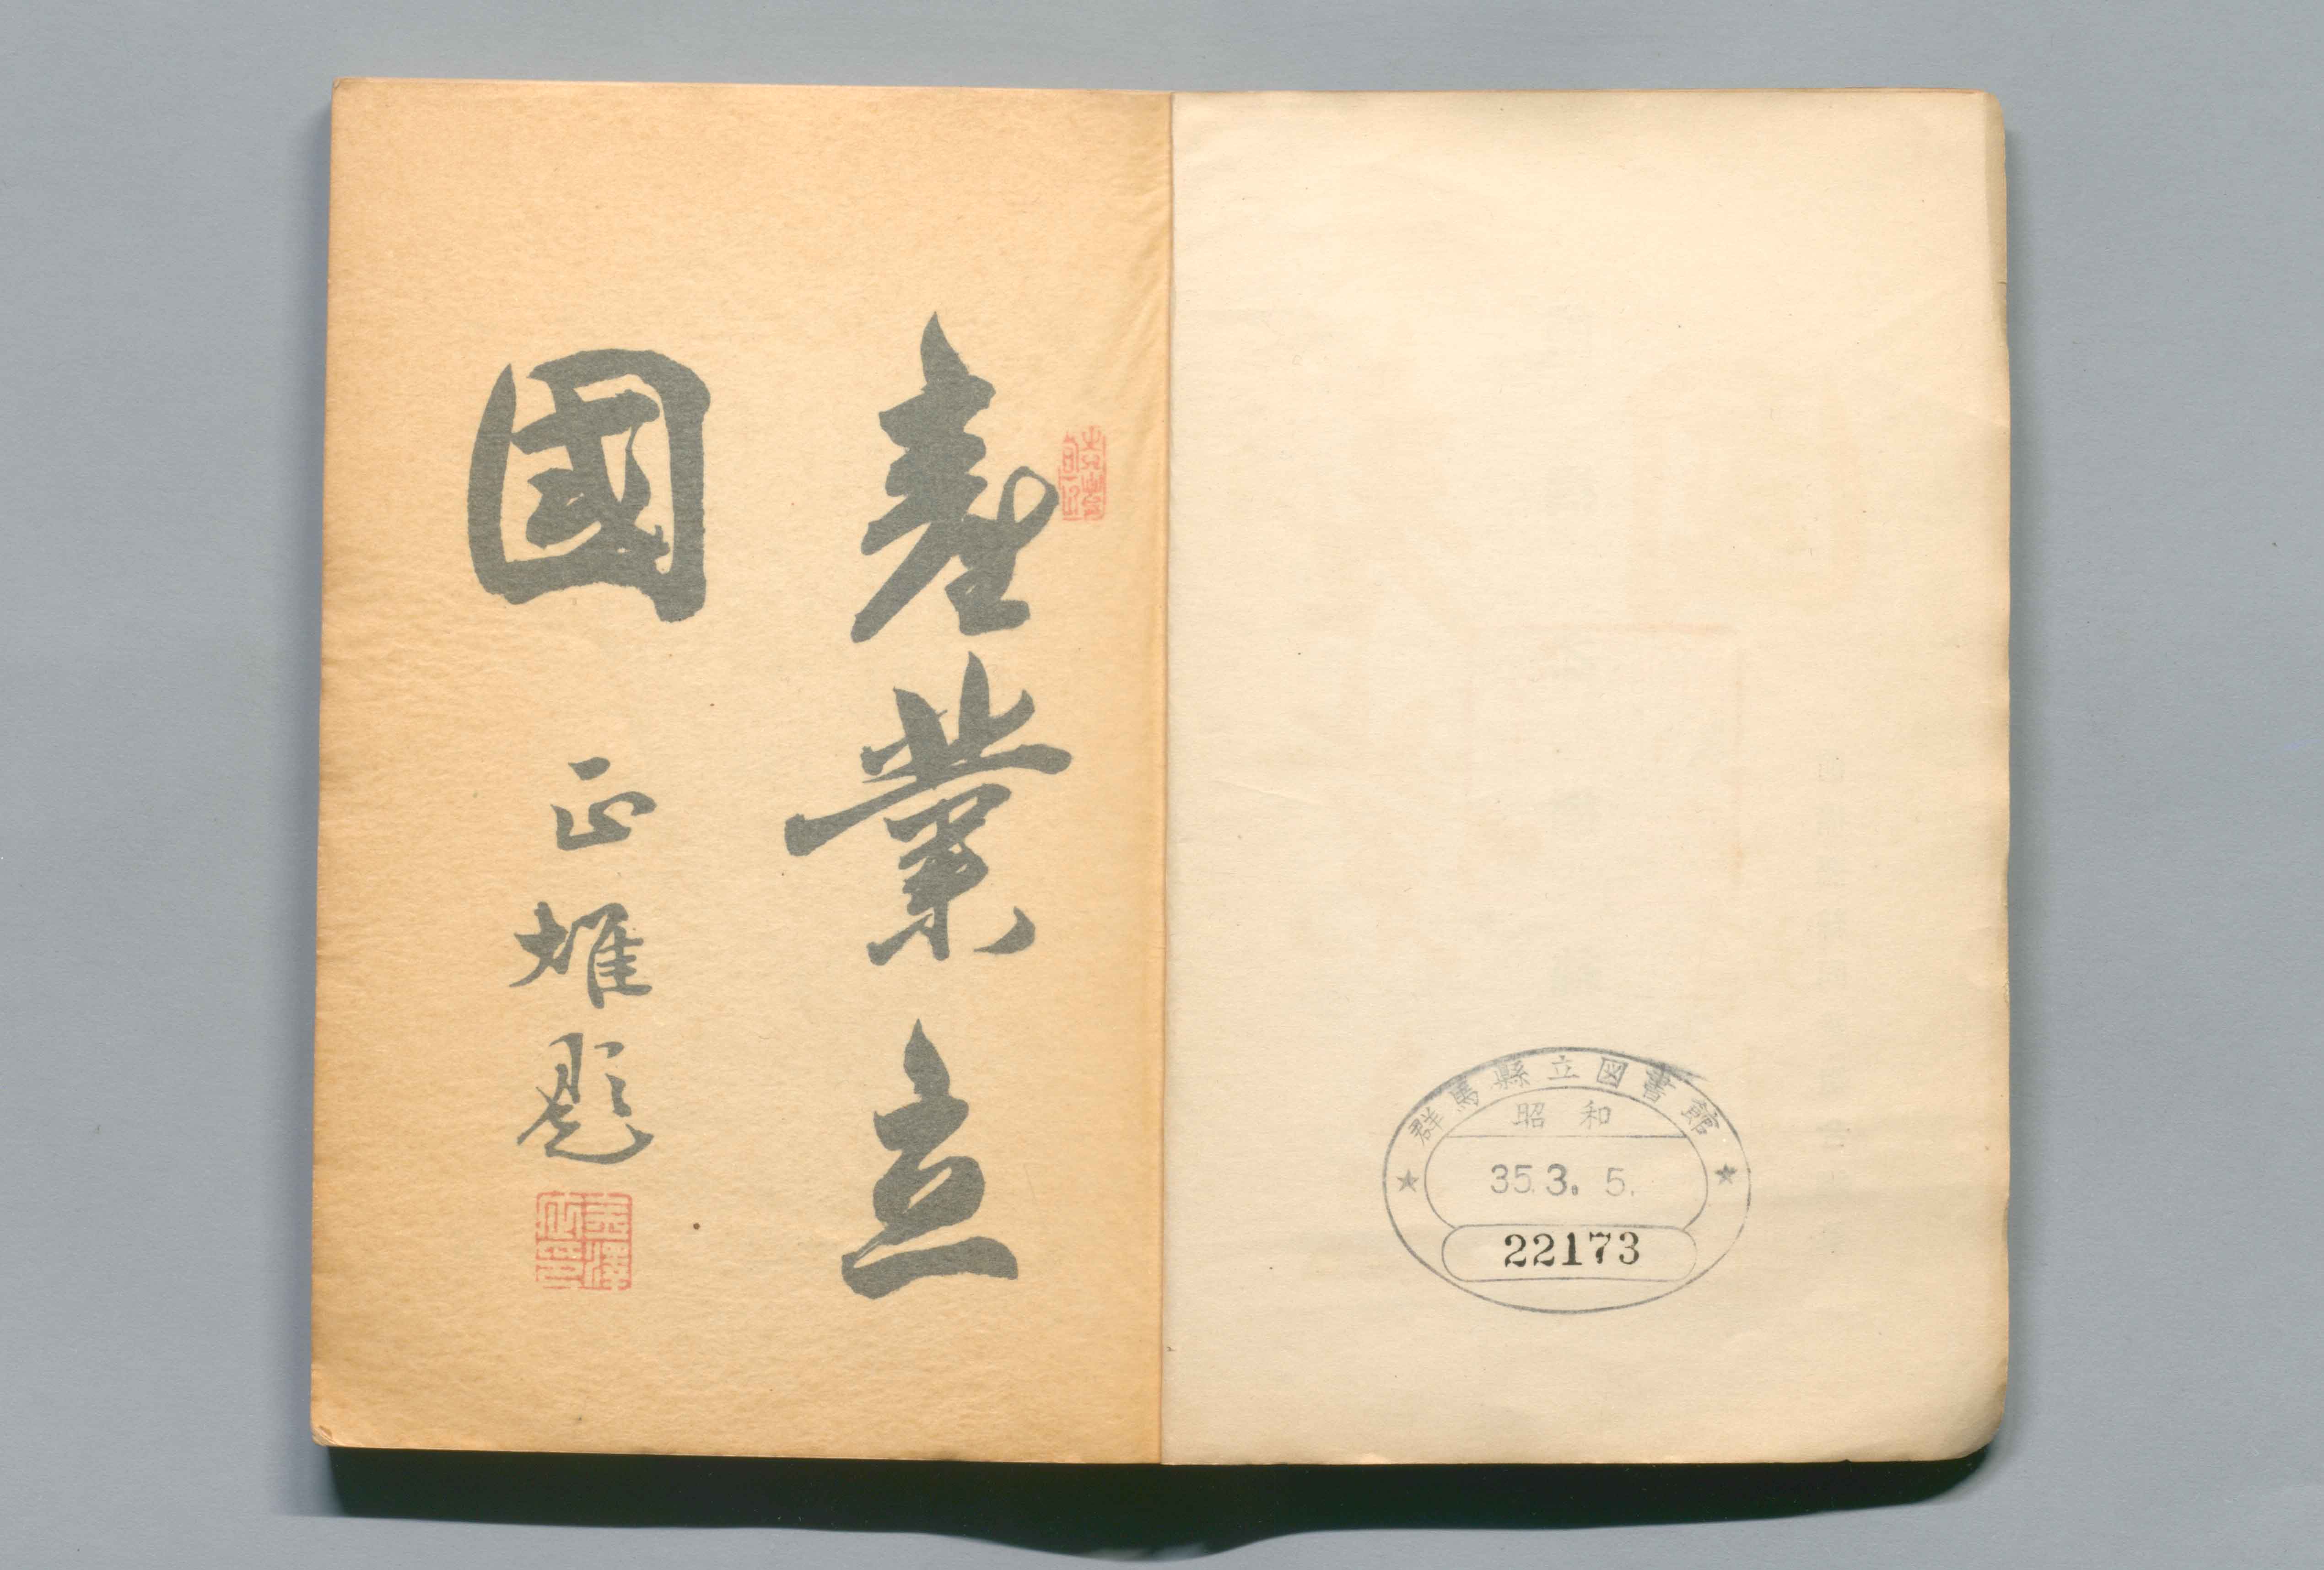 群馬縣立図書館
昭和
35.3.5.
22173
産業立
國
正雄題